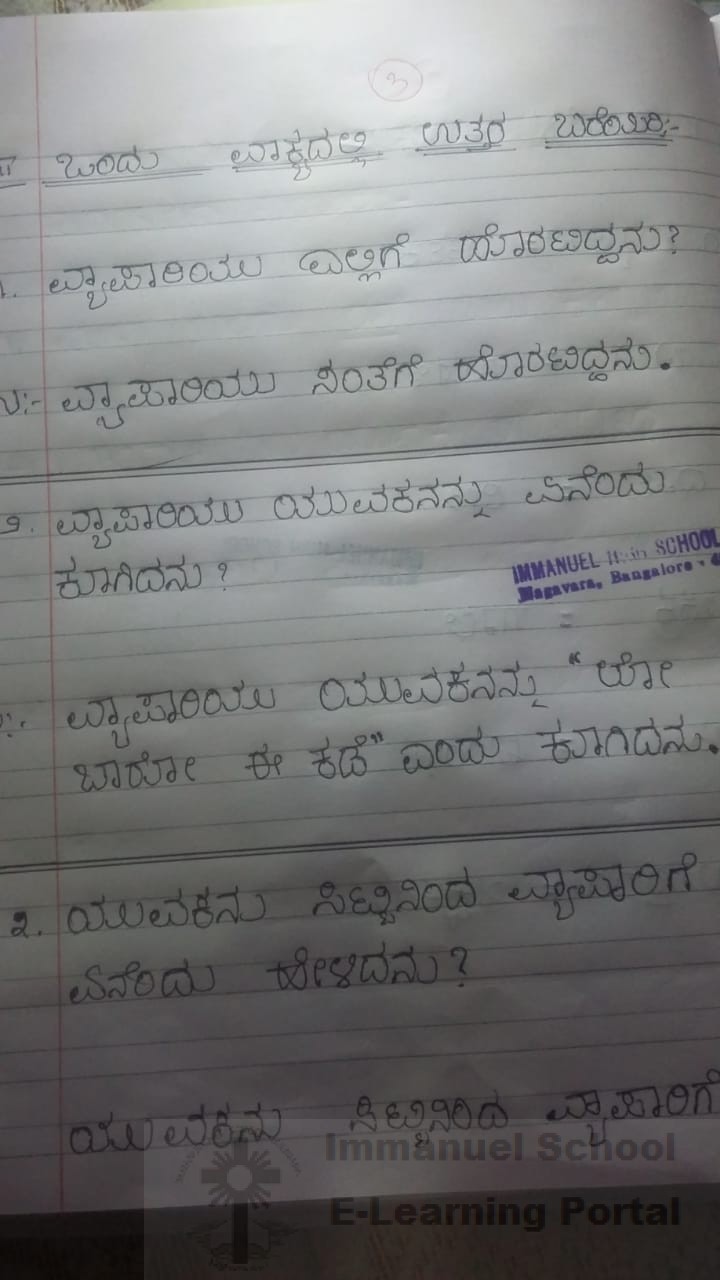 3
ಒಂದು ವಾಕ್ಯದಲ್ಲಿ ಉತ್ತರ ಬರೆಯಿರಿ:-
1. ವ್ಯಾಪಾರಿಯು ಎಲ್ಲಿಗೆ ಹೊರಟಿದ್ದನು?
ಉ:- ವ್ಯಾಪಾರಿಯು ಸಂತೆಗೆ ಹೊರಟಿದ್ದನು.
೨. ವ್ಯಾಪಾರಿಯು ಯುವಕನನ್ನು ಏನೆಂದು
ಕೂಗಿದನು?
IMMANUEL SCHOOL
Magavara, Bangalore - 4
ವ್ಯಾಪಾರಿಯು ಯುವಕನನ್ನು "ಲೋ
ಬಾರೋ ಈ ಕಡೆ" ಎಂದು ಕೂಗಿದನು.
೩. ಯುವಕನು ಸಿಟ್ಟಿನಿಂದ ವ್ಯಾಪಾರಿಗೆ
ಏನೆಂದು ಹೇಳಿದನು?
ಯುವಕನು ಸಿಟ್ಟಿನಿಂದ ವ್ಯಾಪಾರಿಗೆ
Immanuel School
E-Learning Portal